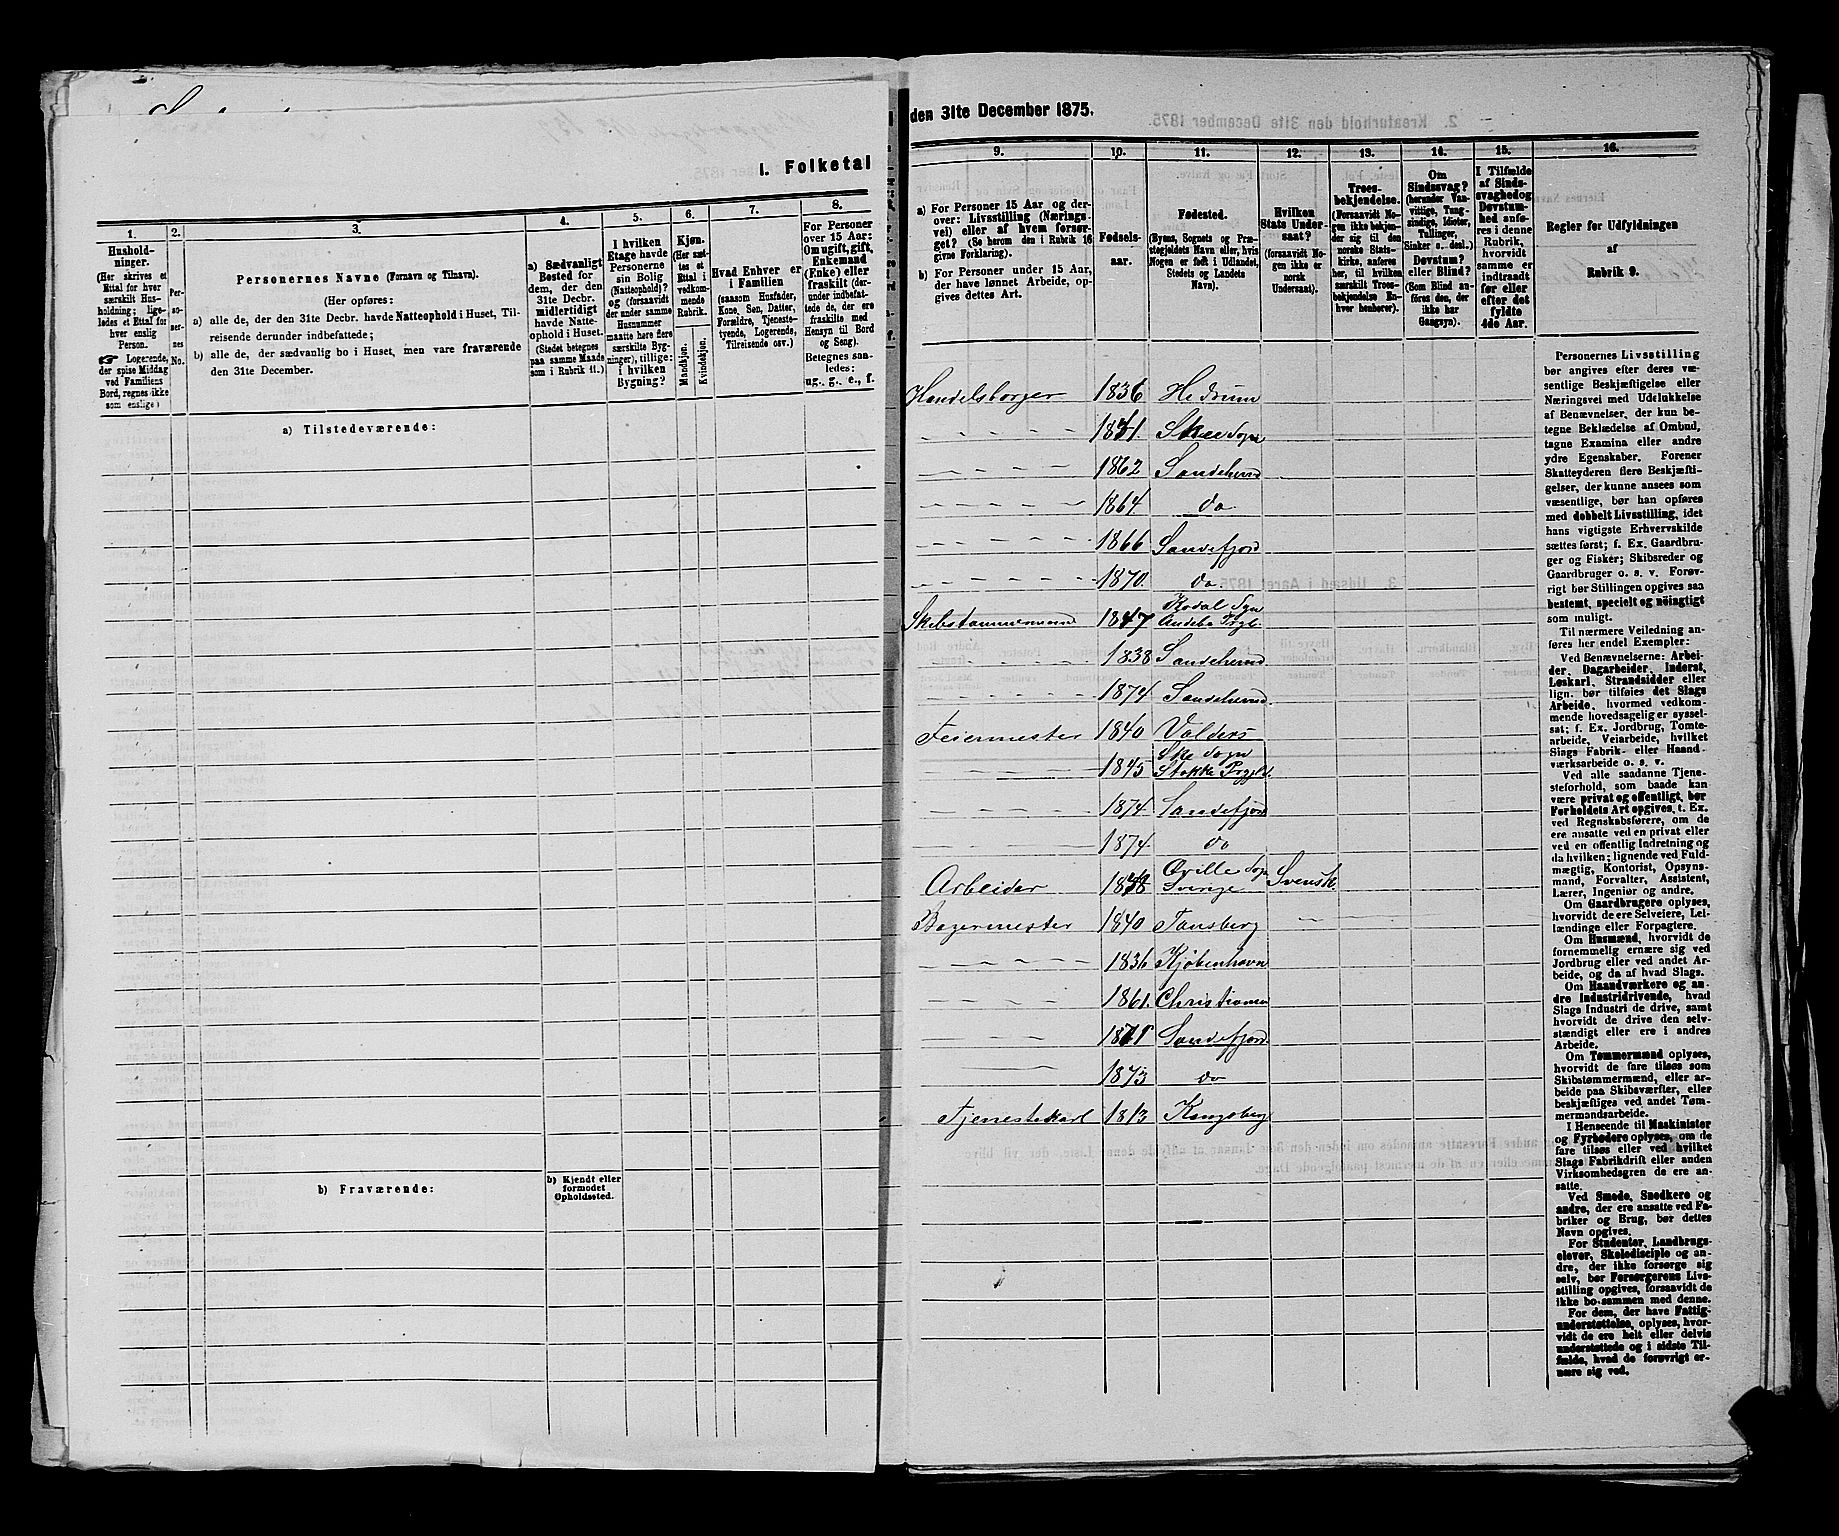 I. Folketal
1. 2. 3. 4. 5. 6. 7. 8.
Hushold-
ninger.
(Her skrives et
Ettal for hver
særskilt Hus-
holdning; lige-
ledes et Ettal for
hver enslig
Person.
☞ Logerende,
der spise Middag
ved Familiens
Bord, regnes ikke
som enslige)
Per-
so-
ner-
nes
No.
Personernes Navne (Fornavn og Tilnavn).
(Her opføres:
a) alle de, der den 31te Decbr. havde Natteophold i Huset, Til-
reisende derunder indbefattede;
b) alle de, der sædvanlig bo i Huset, men vare fraværende
den 31te December.
a) Sædvanligt
Bosted for
dem, der den
31te Decbr.
midlertidigt
havde Natte-
ophold i Huset.
(Stedet betegnes
paa samme Maade
som i Rubrik 11.)
I hvilken
Etage havde
Personerne
sin Bolig
(Natteophold)?
og (forsaavidt
der under samme
Husnummer
maatte høre flere
særskilte Byg-
ninger), tillige:
i hvilken
Bygning?
Kjøn.
(Her sæt-
tes et
Ettal i
vedkom-
mende
Rubrik.
Mandkjøn.
Kvindekjøn.
Hvad Enhver er
i Familien
(saasom Husfader,
Kone, Søn, Datter,
Forældre, Tjeneste-
tyende, Logerende,
Tilreisende osv.)
For Personer
over 15 Aar:
Om ugift, gift,
Enkemand
(Enke) eller
fraskilt (der-
under indbefat-
tede de, der ere
fraskilte med
Hensyn til Bord
og Seng).
Betegnes saa-
ledes:
ug., g., e., f.
a) Tilstedeværende:
b) Fraværende:
b) Kjendt eller
formodet
Opholdssted.
den 31te December 1875.
9. 10. 11. 12. 13. 14. 15. 16.
a) For Personer 15 Aar og der-
over: Livsstilling (Nærings-
vei) eller af hvem forsør-
get? (Se herom den i Rubrik 16
givne Forklaring).
b) For Personer under 15 Aar,
der have lønnet Arbeide, op-
gives dettes Art.
Fødsels-
aar.
Fødested.
(Byens, Sognets og Præ-
stegjeldets Navn eller, hvis
Nogen er født i Udlandet,
Stedets og Landets
Navn).
Hvilken
Stats Under-
saat?
(forsaavidt No-
gen ikke er
norsk
Undersaat).
Troes-
bekjendelse.
(Forsaavidt No-
gen ikke bekjen-
der sig til den
norske Stats-
kirke, anføres
her, til hvilken
særskilt Troes-
bekjendelse En-
hver henhører).
Om
Sindssvag?
(herunder Van-
vittige, Tung-
sindige, Idioter,
Tullinger,
Sinker o. desl.)
Døvstum?
eller Blind?
(Som Blind an-
føres den, der
ikke har
Gangsyn).
I Tilfælde
af Sinds-
svaghed og
Døvstum-
hed anfø-
res i denne
Rubrik,
hvorvidt
samme er
indtraadt
før eller
efter det
fyldte
4de Aar.
Regler for Udfyldningen
af
Rubrik 9.
Handelsborger 1836 Hedrum
1851. Skee Sogn
1862 Sandeherred
1864 do
1866 Sandefjord
1870 do
Skibstømmermand 1847 Kodal Sgn
Andebo Prgl.
1838 Sandeherred
1874 Sandeherred
Feiermester 1840 Valders
1845 Ske Sogn
Stokke Prgjld.
1874 Sandefjord
1874 do
Arbeider Qville Sogn
Sverige Svensk
Bagermester 1840 Tønsberg
1836 Kjøbenhavn
1861. Christiania
1871 Sandefjord
1873 do
Tjenestekarl 1813 Kongsberg
Personernes Livsstilling
bør angives efter deres væ-
sentlige Beskjæftigelse eller
Næringsvei med Udelukkelse
af Benævnelser, der kun be-
tegne Beklædelse af Ombud,
tagne Examina eller andre
ydre Egenskaber. Forener
Skatteyderen flere Beskjæfti-
gelser, der kunne ansees som
væsentlige, bør han opføres
med dobbelt Livsstilling, idet
hans vigtigste Erhvervskilde
sættes først; f. Ex. Gaardbru-
ger og Fisker; Skibsreder og
Gaardbruger o. s. v. Forøv-
rigt bør Stillingen opgives saa
bestemt, specielt og nøiagtigt
som muligt.
Til nærmere Veiledning an-
føres her endel Exempler:
Ved Benævnelserne: Arbei-
der, Dagarbeider, Inderst,
Løskarl, Strandsidder eller
lign. bør tilføies det Slags
Arbeide, hvormed vedkom-
mende hovedsagelig er syssel-
sat; f. Ex. Jordbrug, Tomte-
arbeide, Veiarbeide, hvilket
Slags Fabrik- eller Haand-
værksarbeide o. s. v.
Ved alle saadanne Tjene-
steforhold, som baade kan
være privat og offentligt, bør
Forholdets Art opgives, t. Ex.
ved Regnskabsførere, om de
ere ansatte ved en privat eller
ved en offentlig Indretning og
da hvilken; lignende ved Fuld-
mægtig, Kontorist, Opsyns-
mand, Forvalter, Assistent,
Lærer, Ingeniør og andre.
Om Gaardbrugere oplyses,
hvorvidt de ere Selveiere, Lei-
lændinge eller Forpagtere.
Om Husmænd, hvorvidt de
fornemmelig ernære sig ved
Jordbrug eller ved andet Ar-
beide, og da af hvad Slags.
Om Haandværkere og an-
dre Industridrivende, hvad
Slags Industri de drive, samt
hvorvidt de drive den selv-
stændigt eller ere i andres
Arbeide.
Om Tømmermænd oplyses,
hvorvidt de fare tilsøs som
Skibstømmermænd, eller ar-
beide paa Skibsværfter, eller
beskjæftiges ved andet Tøm-
mermandsarbeide.
I Henseende til Maskinister
og Fyrbødere oplyses, om de
fare tilsøs eller ved hvilket
Slags Fabrikdrift eller anden
Virksomhedsgren de ere an-
satte.
Ved Smede, Snedkere og
andre, der ere ansatte ved Fa-
briker og Brug, bør dettes
Navn opgives.
For Studenter, Landbrugs-
elever, Skoledisciple og an-
dre, der ikke forsørge sig
selv, bør Forsørgerens Livs-
stilling opgives, forsaavidt de
ikke bo sammen med denne.
For dem, der have Fattig-
understøttelse, oplyses, hvor-
vidt de ere helt eller delvis
understøttede og i sidste Til-
fælde, hvad de forøvrigt er-
nære sig ved.